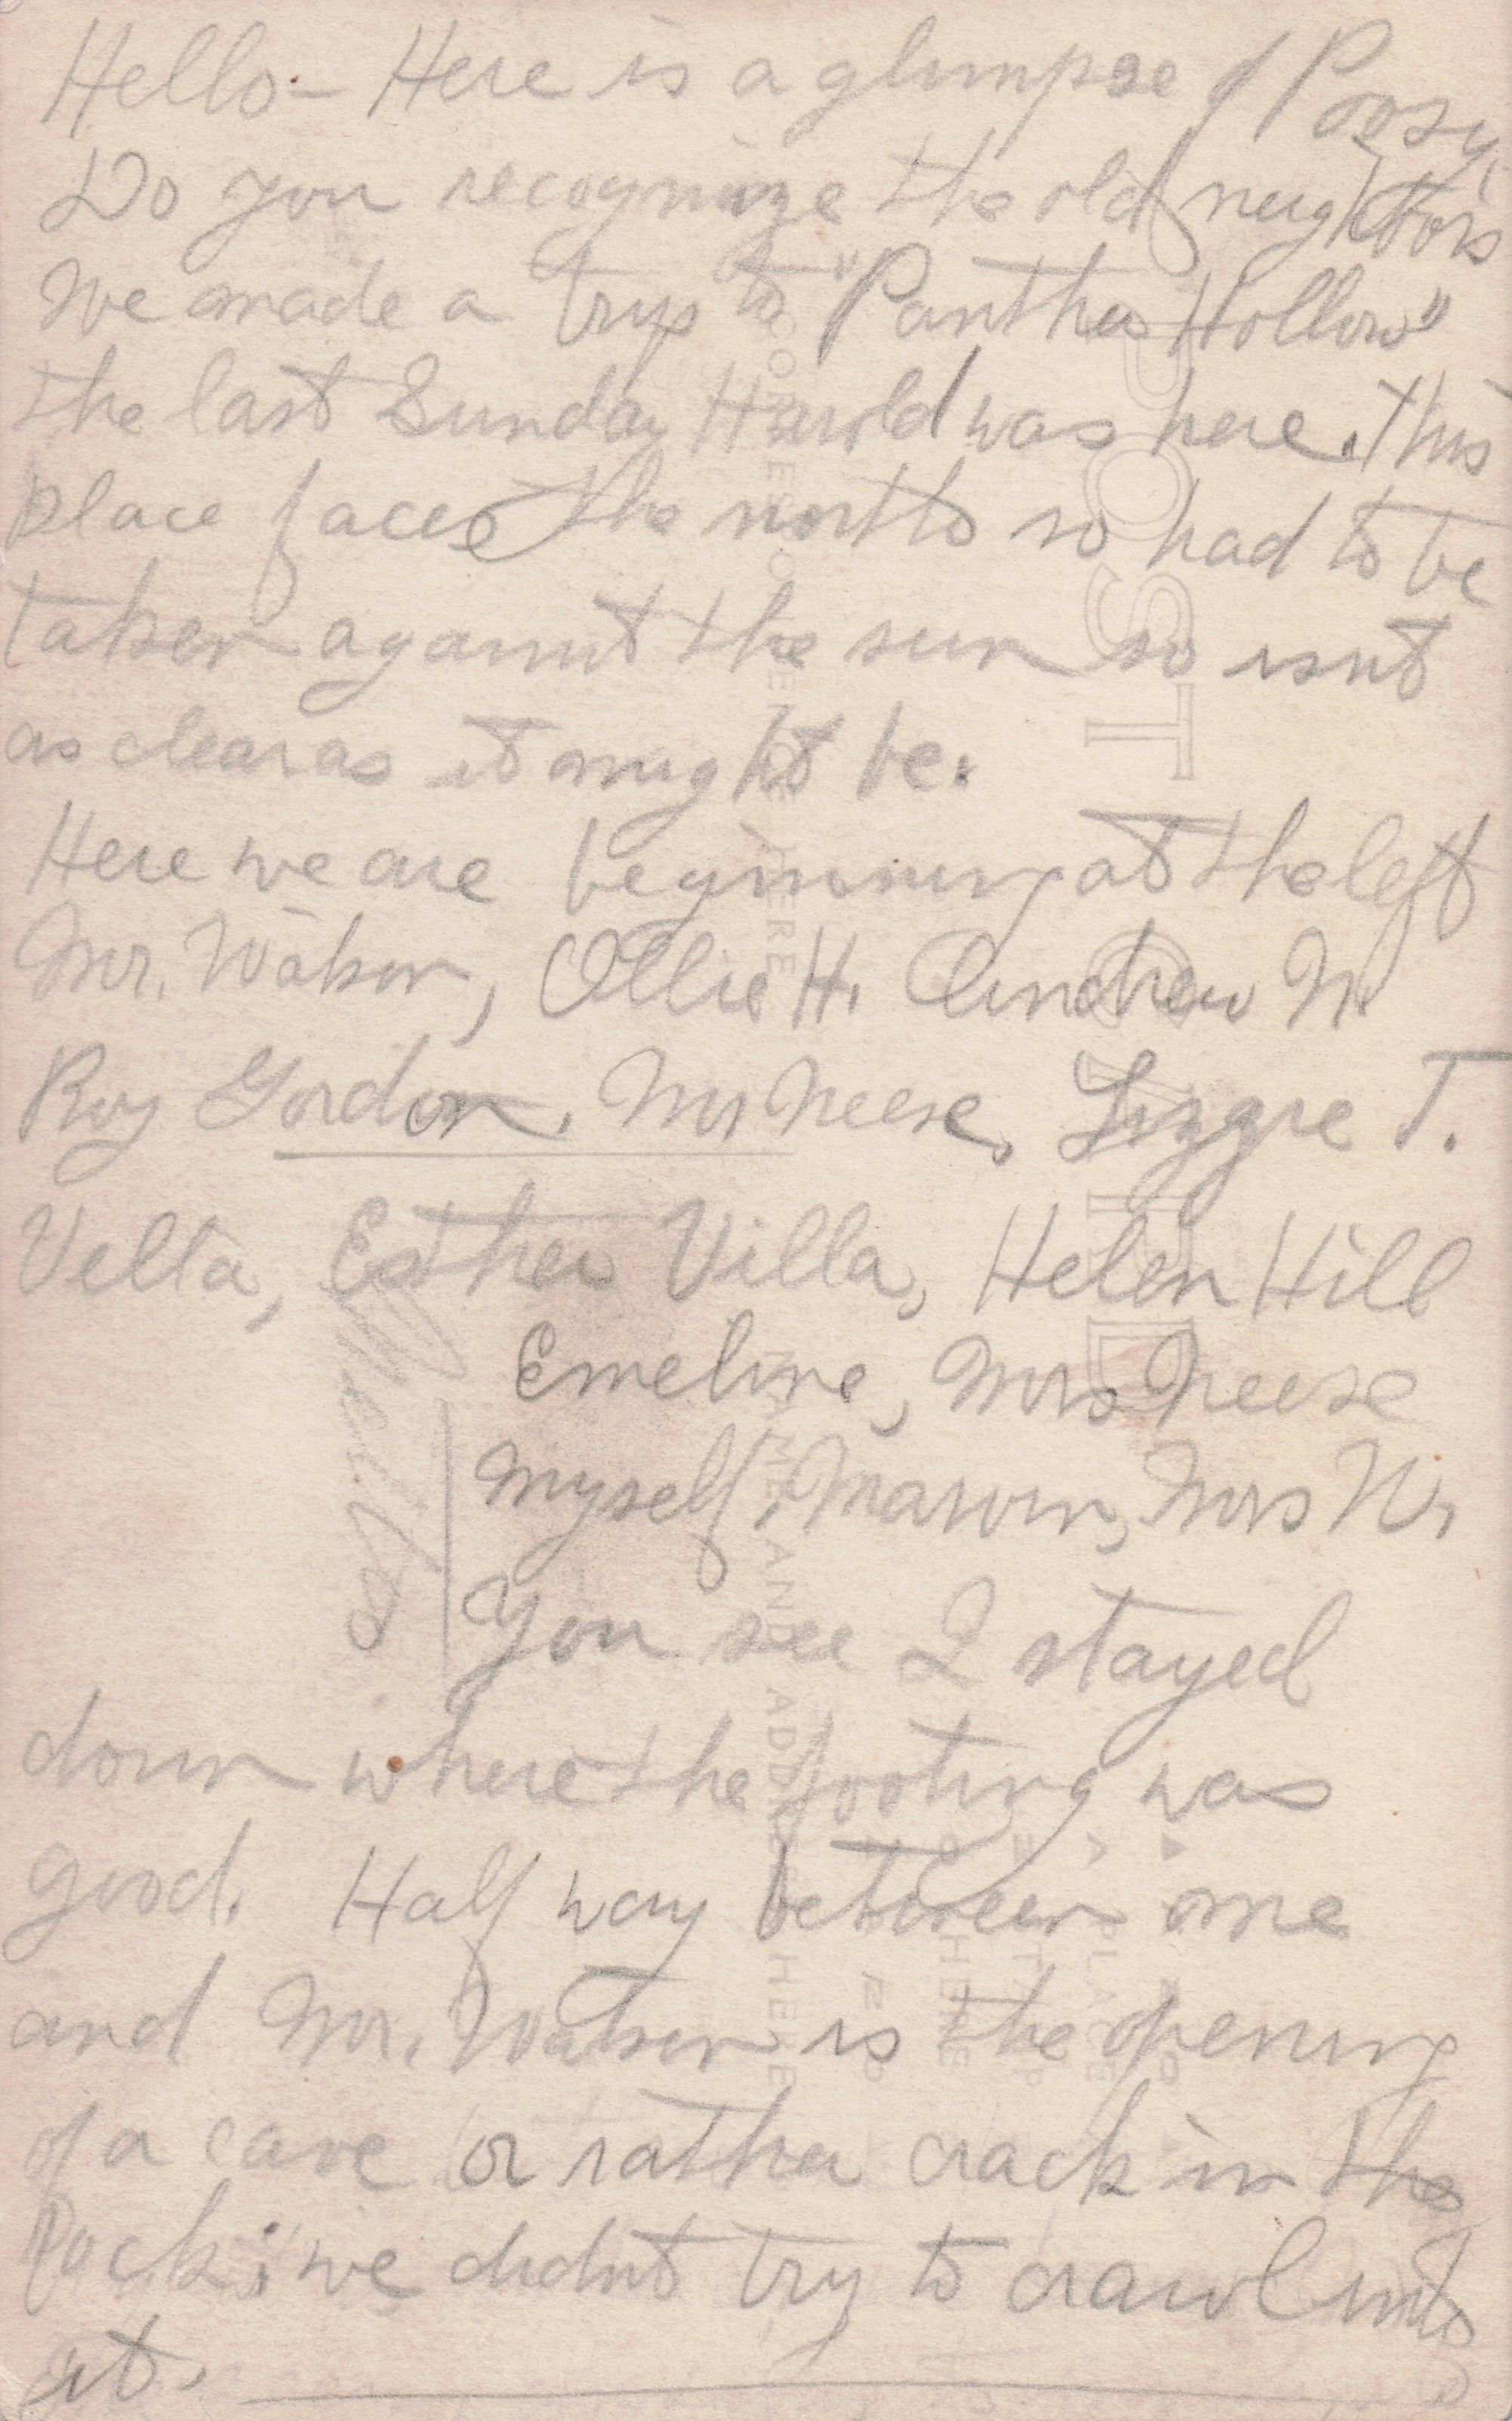 Hello - Here is a glimpse of Posy,
Do you recognize the old neighbors
We made a trip to "Panther Hollow"
the last Sunday Harold was here. This
place faces the north so had to be
taken against the sun so isnt
as clear as it might be.
Here we are beginning at the left
Mr. Watson, Ollie H. Andrew N.
Roy Gordon, Mr Neese, Lizzie T.
Velta, Esther Villa, Helen Hill
Emeline, Mrs Neese
myself, Marvin, Mrs W.
You see I stayed
down where the footing was
good. Half way between me
and Mr. Watson is the opening
of a cave or rather crack in the
rock; we didnt try to crawl into
it.
POST CARD
CORRESPONDENCE HERE
NAME AND ADDRESS HERE
PLACE
STAMP
HERE